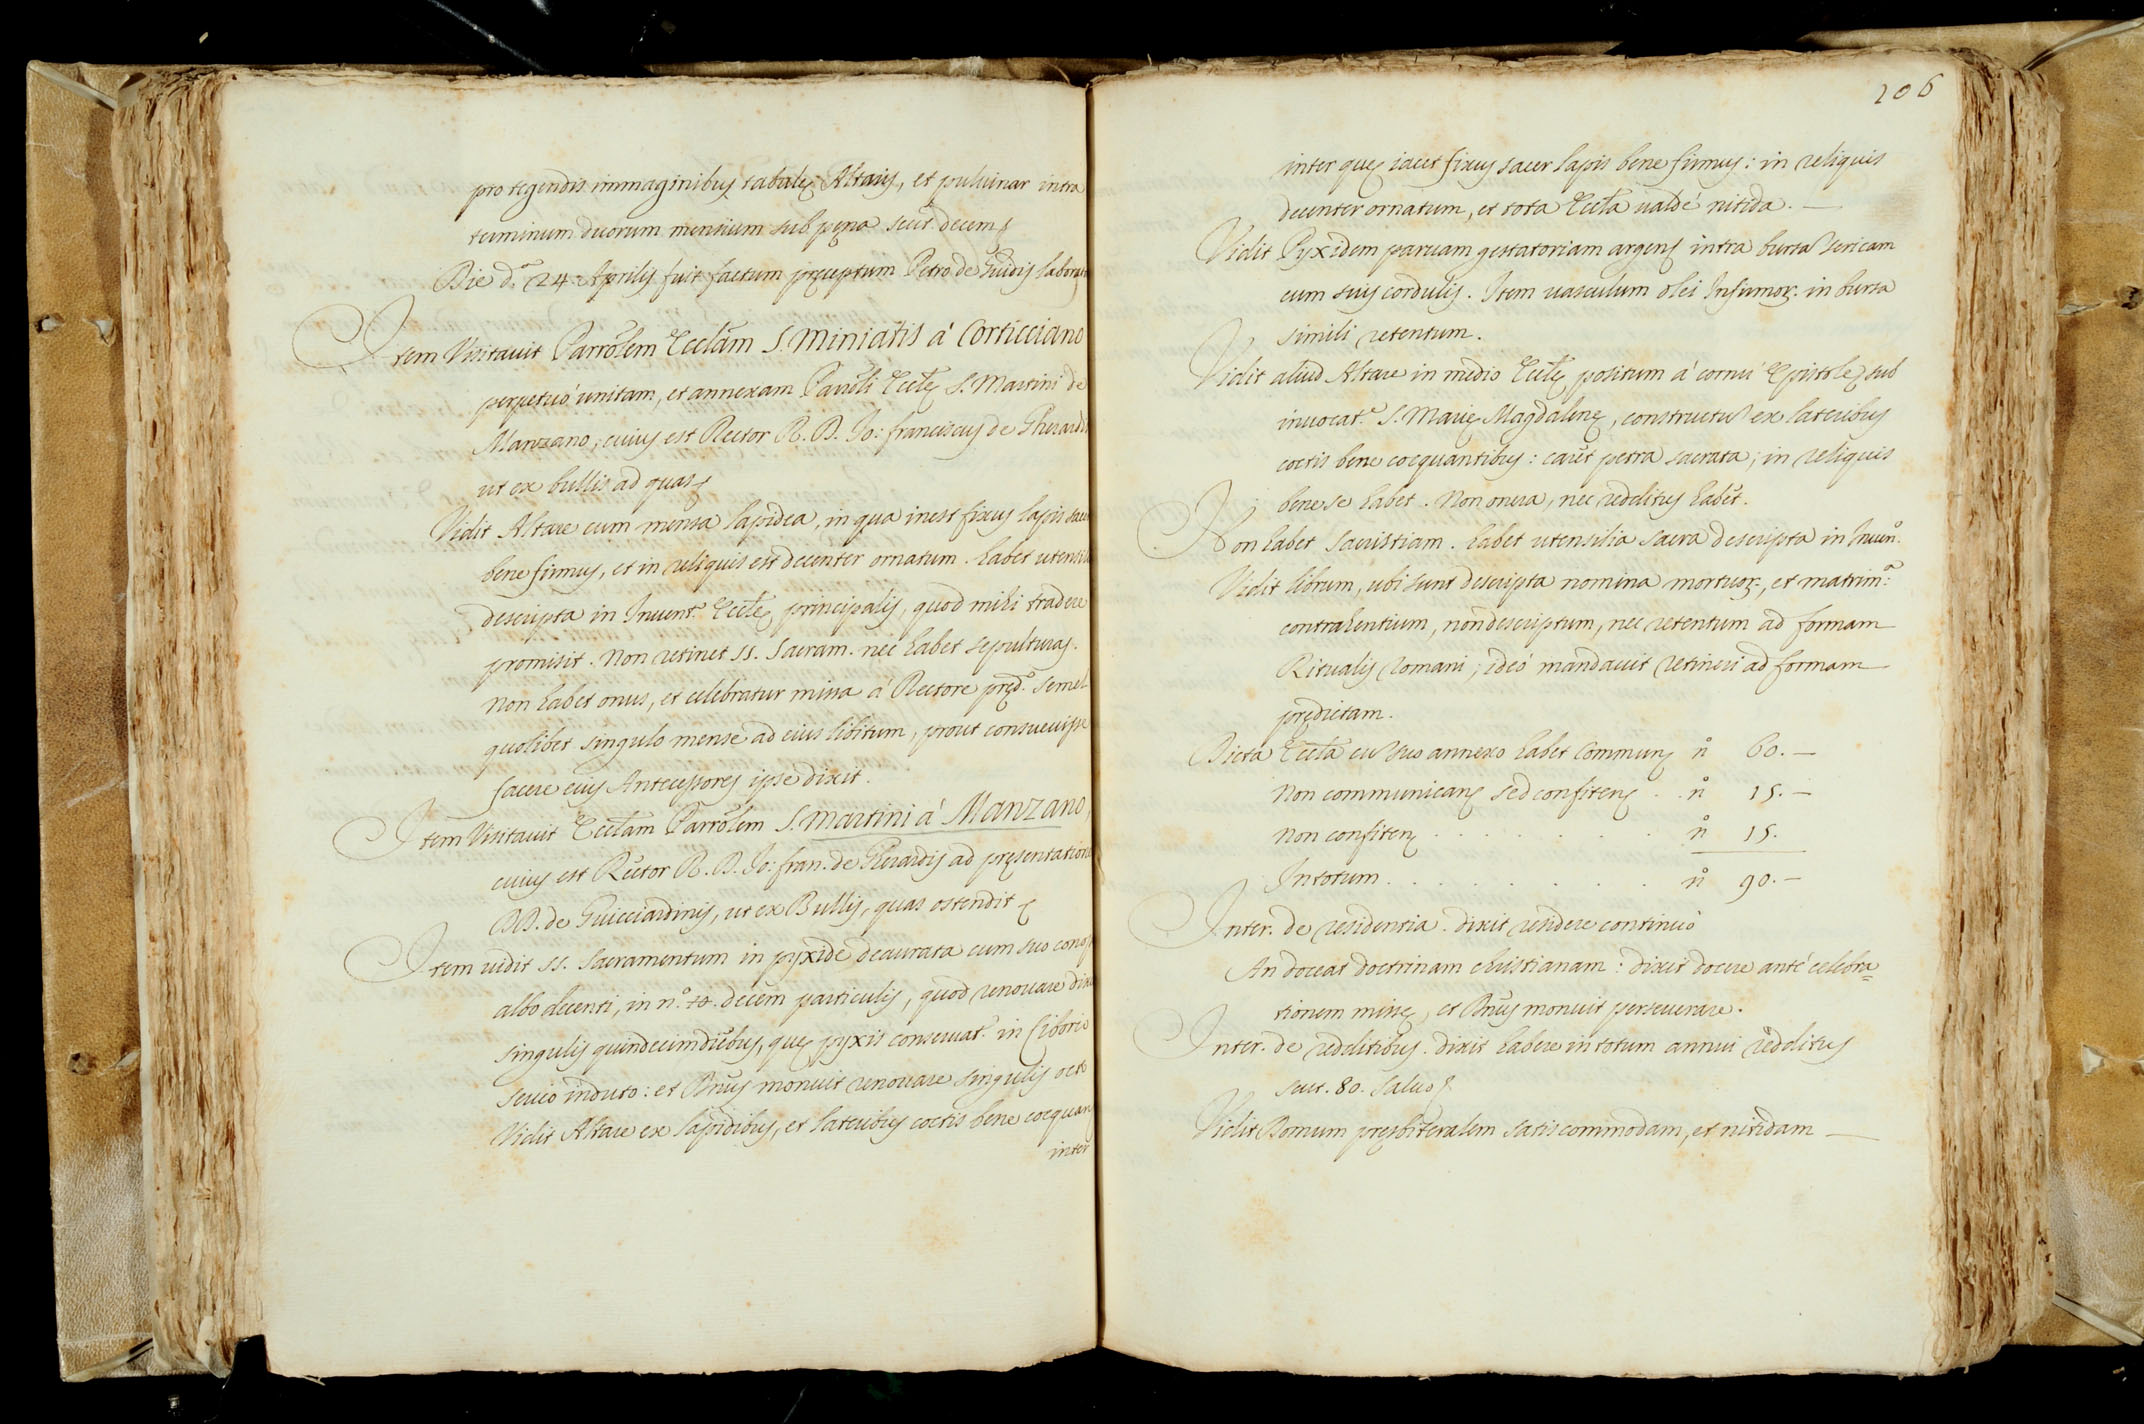 pro tegendis immaginibus tabulę Altaris, et puluinar intra
terminum duorum mensium sub pęna scut. decem
Die d.ᵃ 24 Aprilis fuit factum pręceptum Petro de Guidis
Item Visitauit Parrõlem Ecclãm S. Miniatis à Corticciano
perpetuò unitam, et annexam Parroli Ecclę S. Martini de
Manzano, cuius est Rector R. D. Jo: franciscus de Gherardis
ut ex bullis ad quas
Vidit Altare cum mensa lapidea, in qua inest fixus lapis
bene firmus, et in reliquis est decenter ornatum. habet utensilia
descripta in Inuent.º Ecclę principalis, quod mihi tradere
promisit. Non retinet SS. Sacram. nec habet sepulturas.
Non habet onus, et celebratur missa à Rectore pręd.º semel
quolibet singulo mense ad eius libitum, prout consueuisse
facere eius Antecessores ipse dixit.
Item Visitauit Ecclãm Parrõlem S. Martini à Manzano,
cuius est Rector R. D. Jo: fran. de Gherardis ad pręsentationem
DD. de Guicciardinis, ut ex Bullis, quas ostendit
Item uidit SS. Sacramentum in pyxide deaurata cum suo
albo decenti, in n.º decem particulis, quod renouare
singulis quindecim diebus, quę pyxis conseruat.ʳ in Ciborio
serico induto: et Dñus monuit renouare singulis octo
Vidit Altare ex lapidibus, et lateribus coctis bene coequan
inter
206
inter quę iacet fixus sacer lapis bene firmus: in reliquis
decenter ornatum, et tota Eccla ualdè nitida. —
Vidit Pyxidem paruam gestatoriam argenť intra bursã sericam
cum suis cordulis. Item uasculum olei Infirmoꝝ. in bursa
simili retentum.
Vidit aliud Altare in medio Ecclę positum à cornu Epistolę sub
inuocat.ᵉ S. Marię Magdalenę, constructũ ex lateribus
coctis bene coequantibus: caret petra sacrata; in reliquis
bene se habet. Non onera, nec redditus habet.
Non habet Sacristiam. habet utensilia sacra descripta in Inuen.º
Vidit librum, ubi sunt descripta nomina mortuoꝝ., et matrim.ᵃ
contrahentium, non descriptum, nec retentum ad formam
Ritualis romani; ideò mandauit retineri ad formam
prędictam.
Dicta Eccla cũ suo annexo habet Communę n.º 60. —
Non communicanę sed confitenę . . n.º 15. —
Non confitenę . . . . . . . . n.º 15.
In totum . . . . . . . . . n.º 90. —
Inter. de residentia. dixit residere continuò
An doceat doctrinam christianam: dixit docere antè celebra=
tionem missę, et Dñus monuit perseuerare.
Inter. de redditibus. dixit habere in totum annui redditus
scut. 80. saluo
Vidit Domum pręsbiteralem satis commodam, et nitidam —